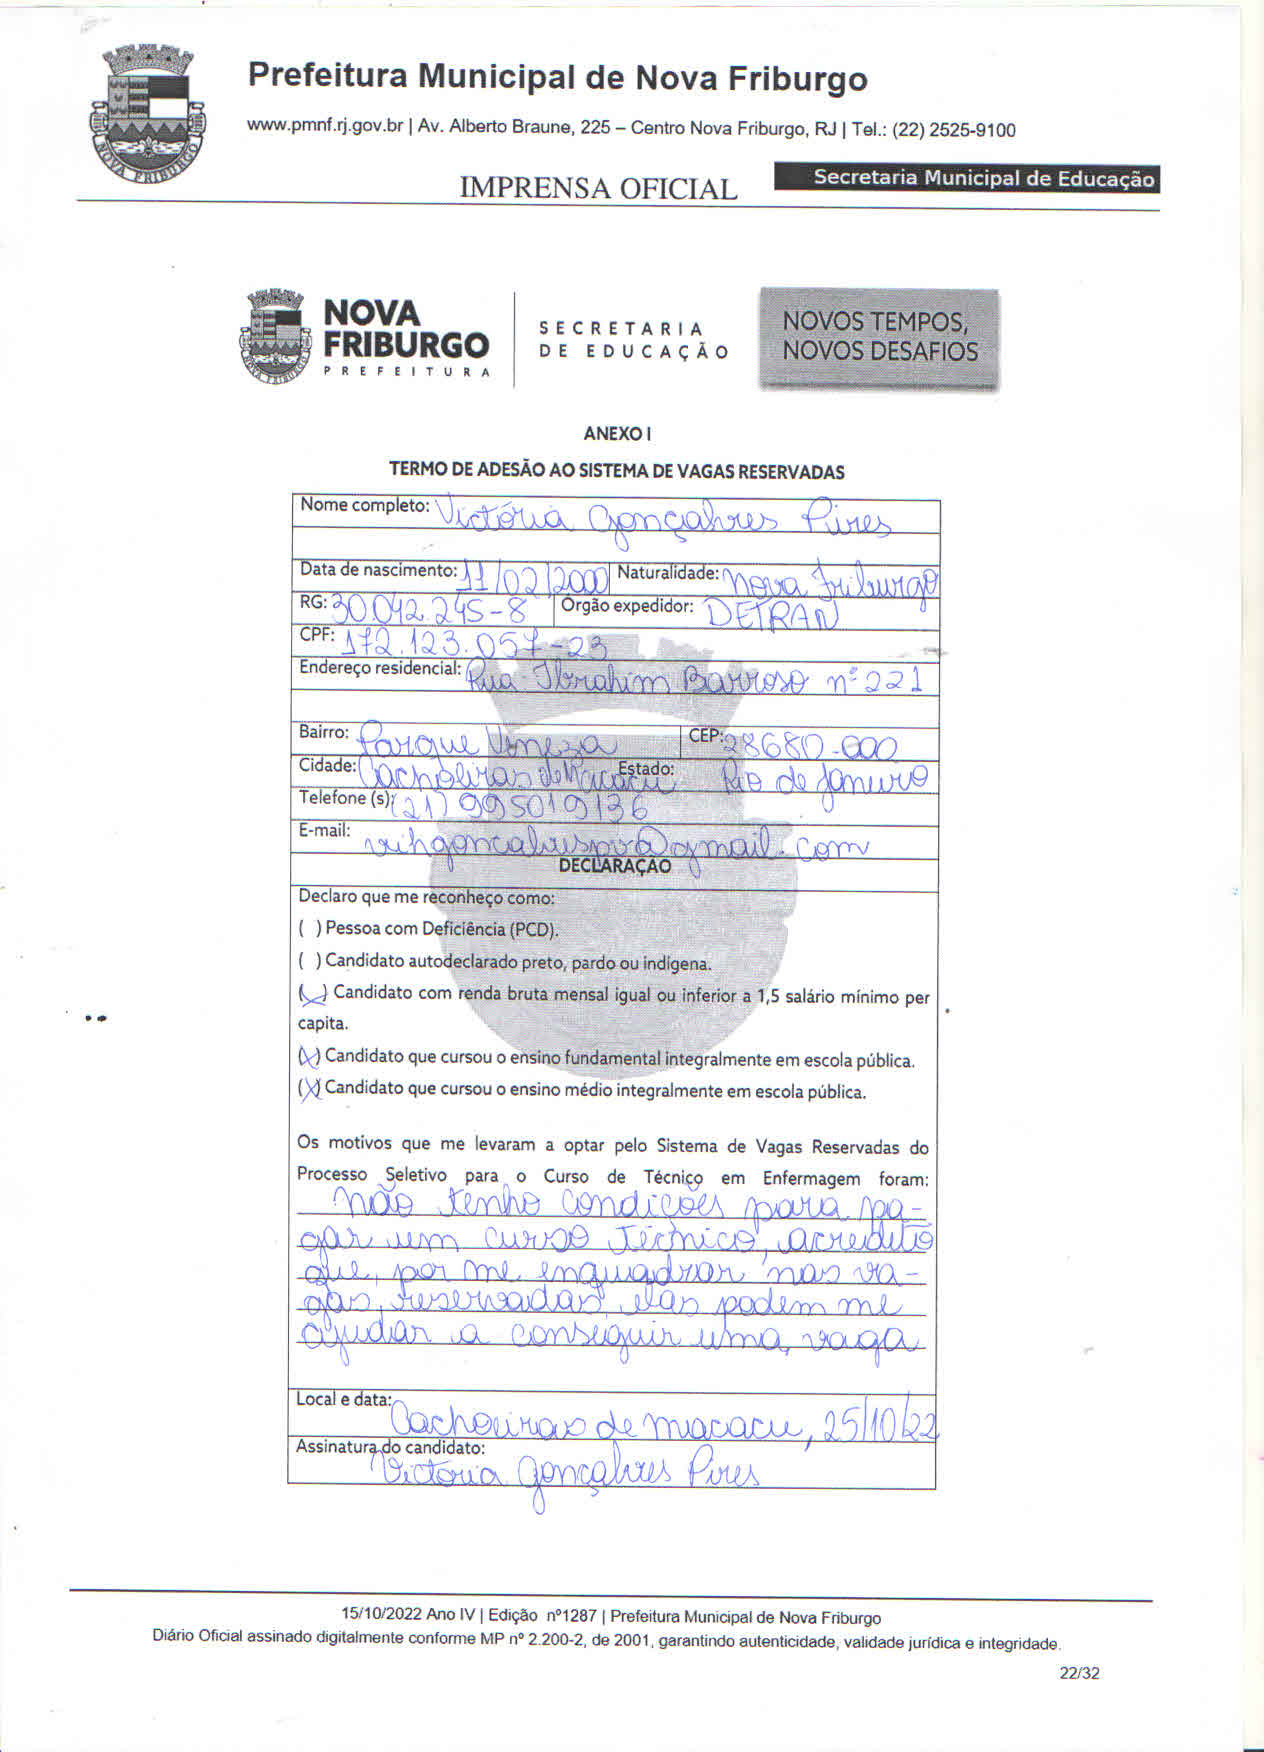 Prefeitura Municipal de Nova Friburgo
www.pmnf.rj.gov.br | Av. Alberto Braune, 225 – Centro Nova Friburgo, RJ | Tel.: (22) 2525-9100
IMPRENSA OFICIAL
Secretaria Municipal de Educação
NOVA FRIBURGO
NOVA
FRIBURGO
PREFEITURA
SECRETARIA
DE EDUCAÇÃO
NOVOS TEMPOS,
NOVOS DESAFIOS
ANEXO I
TERMO DE ADESÃO AO SISTEMA DE VAGAS RESERVADAS
Nome completo: Victória Gonçalves Pires
Data de nascimento: 11/02/2000 Naturalidade: Nova Friburgo
RG: 30.042.245-8 Órgão expedidor: DETRAN
CPF: 172.123.057-23
Endereço residencial: Rua Ibrahim Barroso nº 221
Bairro: Parque Veneza CEP: 28680-000
Cidade: Cachoeiras de Macacu Estado: Rio de Janeiro
Telefone (s): (21) 995019136
E-mail: vihgoncalvespv@gmail.com
DECLARAÇÃO
Declaro que me reconheço como:
( ) Pessoa com Deficiência (PCD).
( ) Candidato autodeclarado preto, pardo ou indígena.
(x) Candidato com renda bruta mensal igual ou inferior a 1,5 salário mínimo per
capita.
(x) Candidato que cursou o ensino fundamental integralmente em escola pública.
(x) Candidato que cursou o ensino médio integralmente em escola pública.
Os motivos que me levaram a optar pelo Sistema de Vagas Reservadas do
Processo Seletivo para o Curso de Técnico em Enfermagem foram:
Não tenho condições para pa-
gar um curso técnico, acredito
que, por me enquadrar nas va-
gas reservadas elas podem me
ajudar a conseguir uma vaga
Local e data: Cachoeiras de Macacu, 25/10/22
Assinatura do candidato: Victória Gonçalves Pires
15/10/2022 Ano IV | Edição nº1287 | Prefeitura Municipal de Nova Friburgo
Diário Oficial assinado digitalmente conforme MP nº 2.200-2, de 2001, garantindo autenticidade, validade jurídica e integridade.
22/32